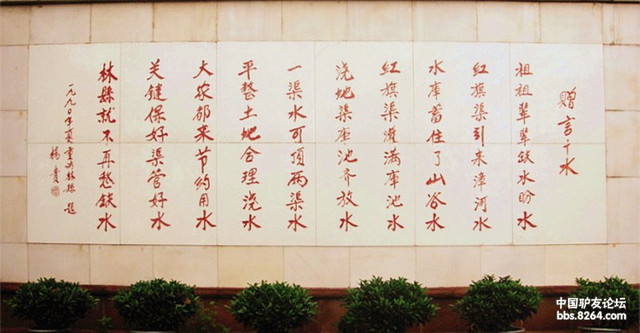 赠言十水
祖祖辈辈缺水盼水
红旗渠引来漳河水
水库蓄住了山谷水
红旗渠灌满库池水
浇地渠库池齐放水
一渠水可顶两渠水
平整土地合理浇水
大家都来节约用水
关键保好渠管好水
林县就不再愁缺水
一九九〇年夏重返林县 题
杨贵
中国驴友论坛
bbs.8264.com